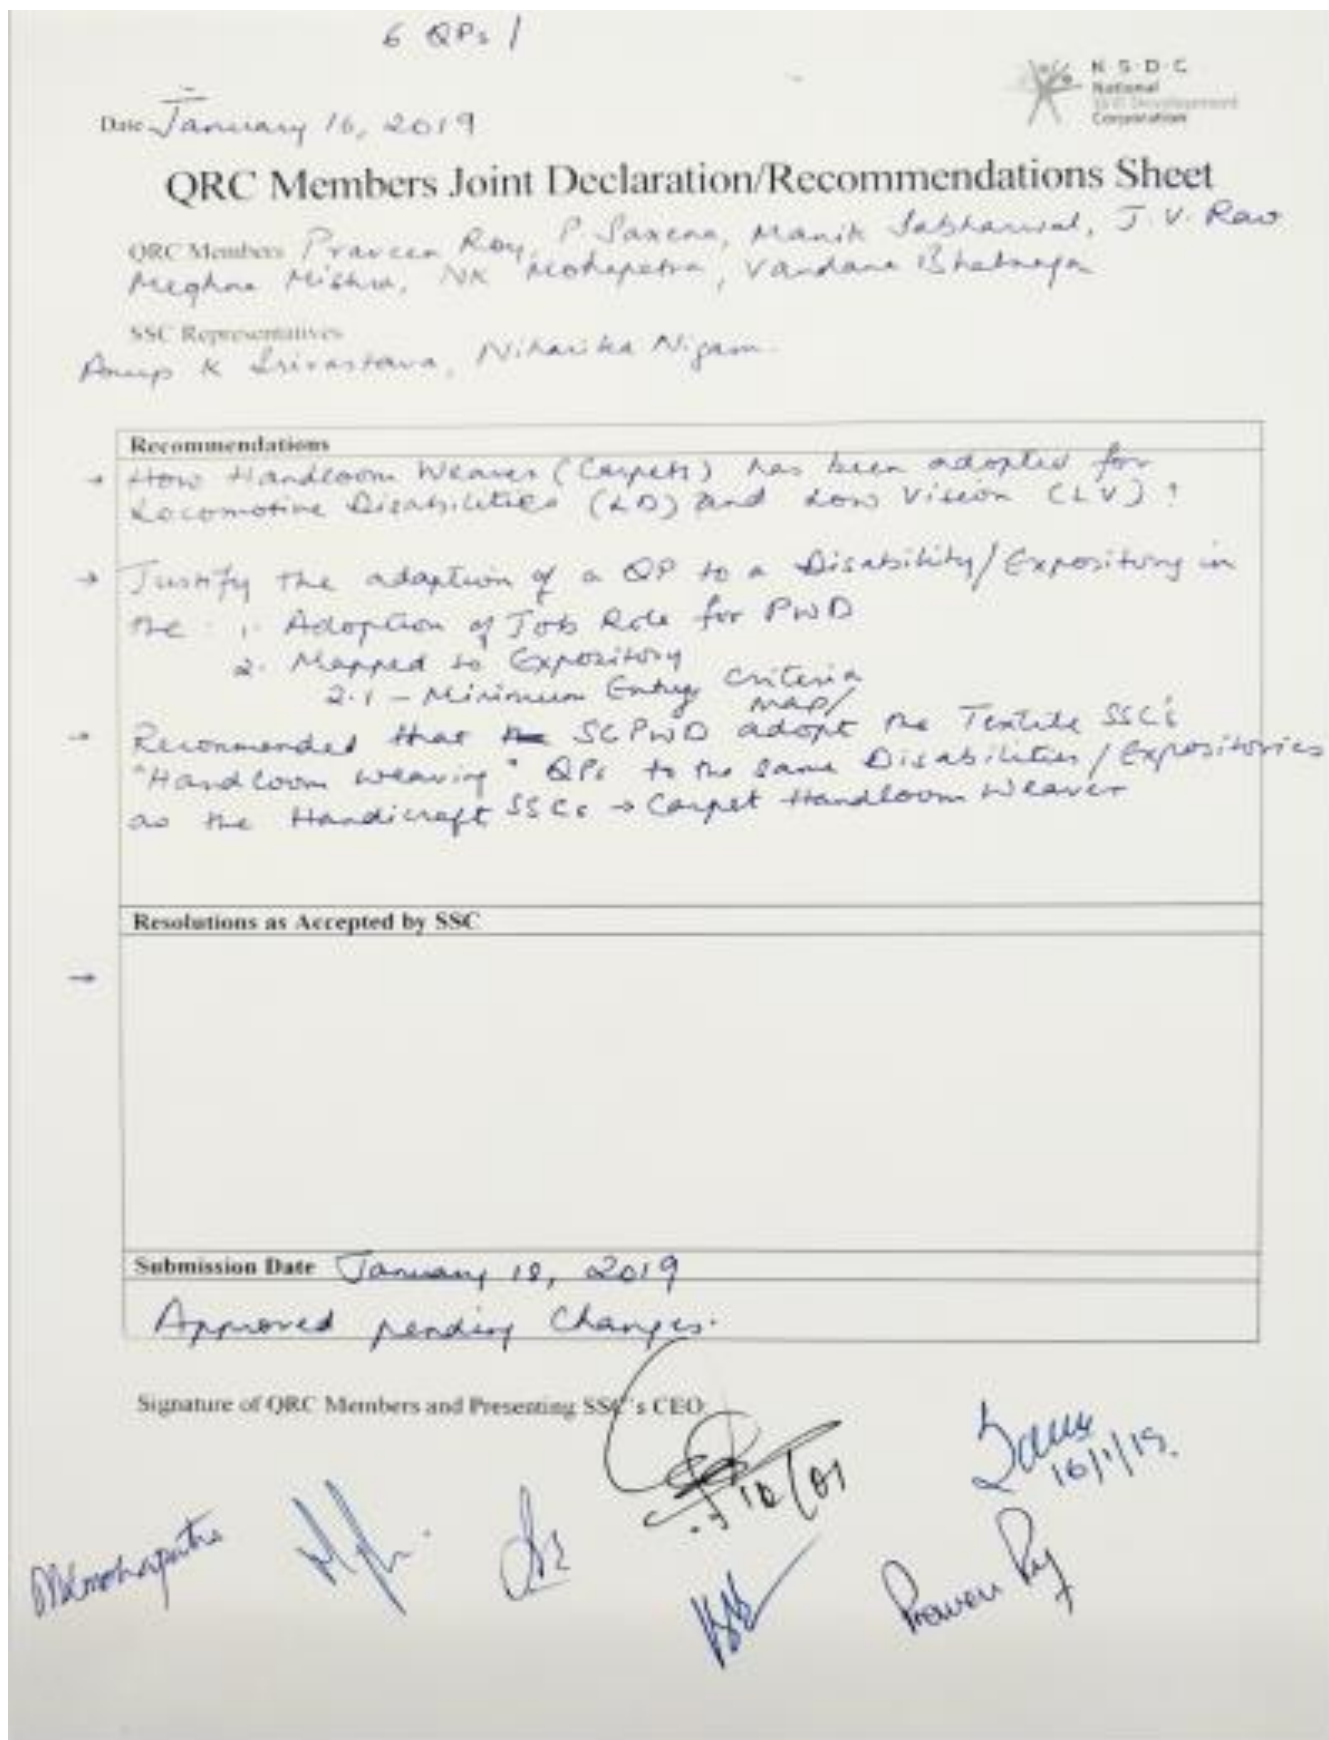 6 QPs /
N·S·D·C
National
Skill Development
Corporation
Date January 16, 2019
QRC Members Joint Declaration/Recommendations Sheet
QRC Members Praveen Roy, P Saxena, Manik Sabharwal, J.V. Rao
Meghna Mishra, NK Mohapatra, Vandana Bhatnagar
SSC Representatives
Anup K Srivastava, Niharika Nigam
Recommendations
→ How Handloom Weaver (Carpets) has been adopted for
Locomotive Disabilities (LD) and Low Vision (LV) ?
→ Justify the adaption of a QP to a Disability/Expository in
the : 1. Adoption of Job Role for PwD
2. Mapped to Expository
2.1 - Minimum Entry Criteria
map/
→ Recommended that SCPwD adopt the Textile SSC's
"Handloom weaving" QPs to the same Disabilities/Expositories
as the Handicraft SSCs → Carpet Handloom Weaver
Resolutions as Accepted by SSC
→
Submission Date January 18, 2019
Approved pending Changes.
Signature of QRC Members and Presenting SSC's CEO
16/1/19.
NKmohapatra
Praveen Roy